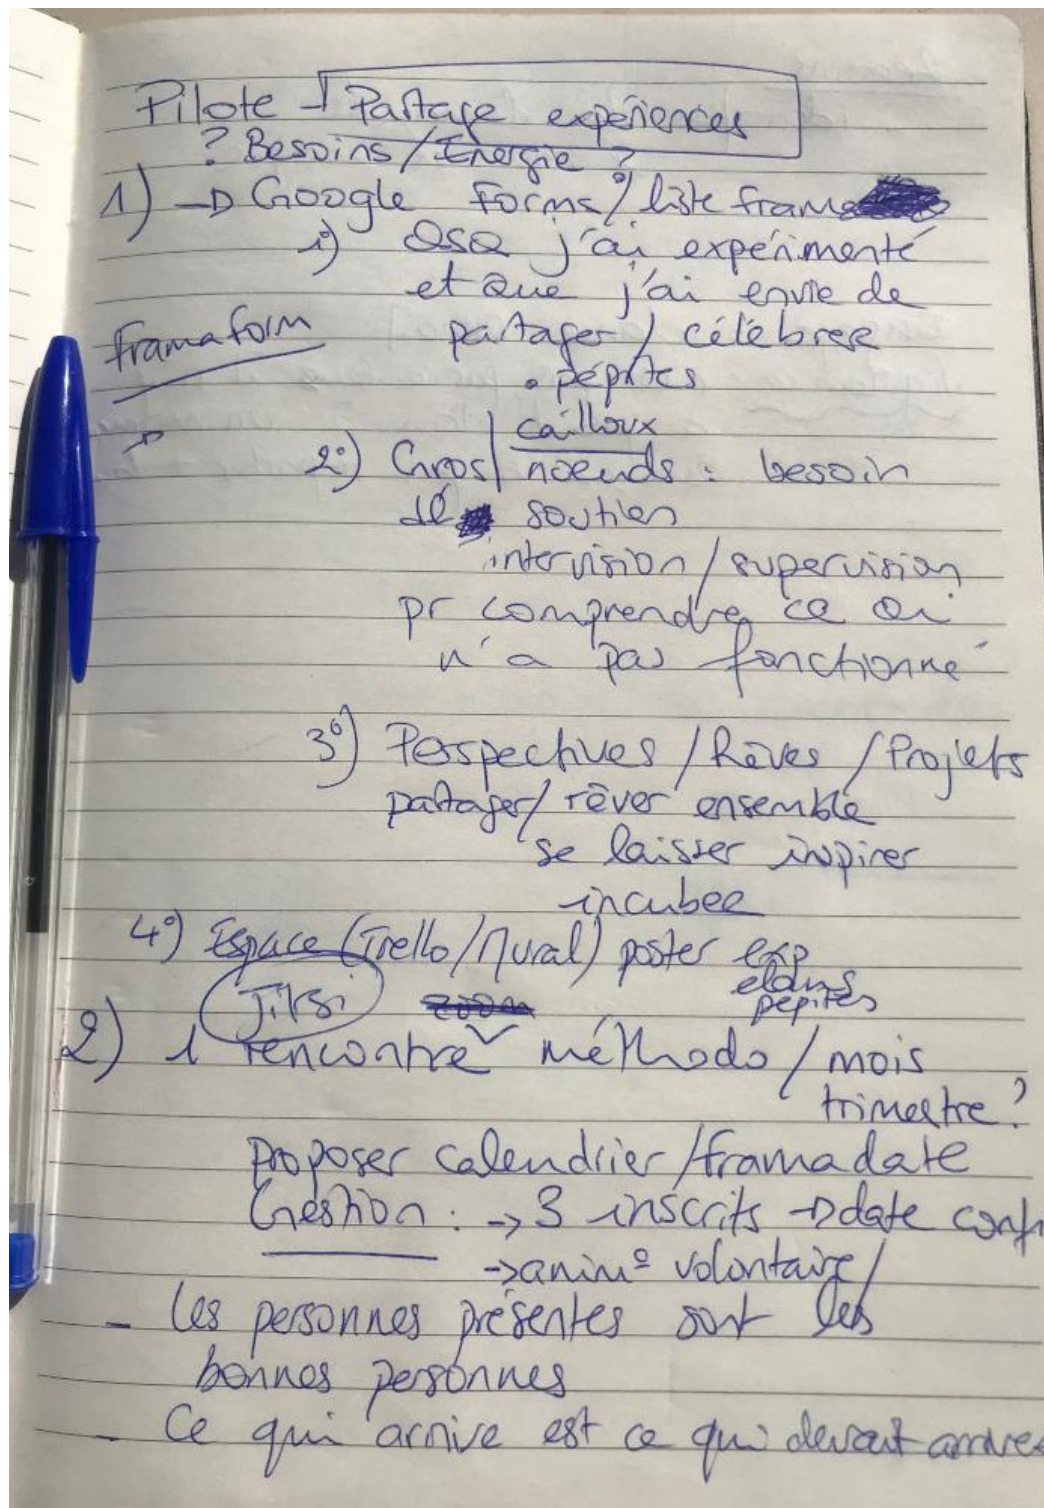 Pilote → Partage expériences
? Besoins/Energie ?
1) → Google Forms?/liste frama
1°) QSQ j'ai expérimenté
et que j'ai envie de
partager / célébrer
Framaform
• pépites
cailloux
2°) Gros/ noeuds : besoin
de soutien
intervision/supervision
pr comprendre ce qi
n'a pas fonctionné
3°) Perspectives/Rêves/Projets
partager/rêver ensemble
se laisser inspirer
incuber
4°) Espace (Trello/Mural) poster exp
élans
pépites
Jitsi zoom
2) 1 rencontre méthodo/mois
trimestre ?
proposer calendrier/framadate
Gestion : → 3 inscrits → date conf
→ anim° volontaire/
- Les personnes présentes sont les
bonnes personnes
- Ce qui arrive est ce qui devait arriver